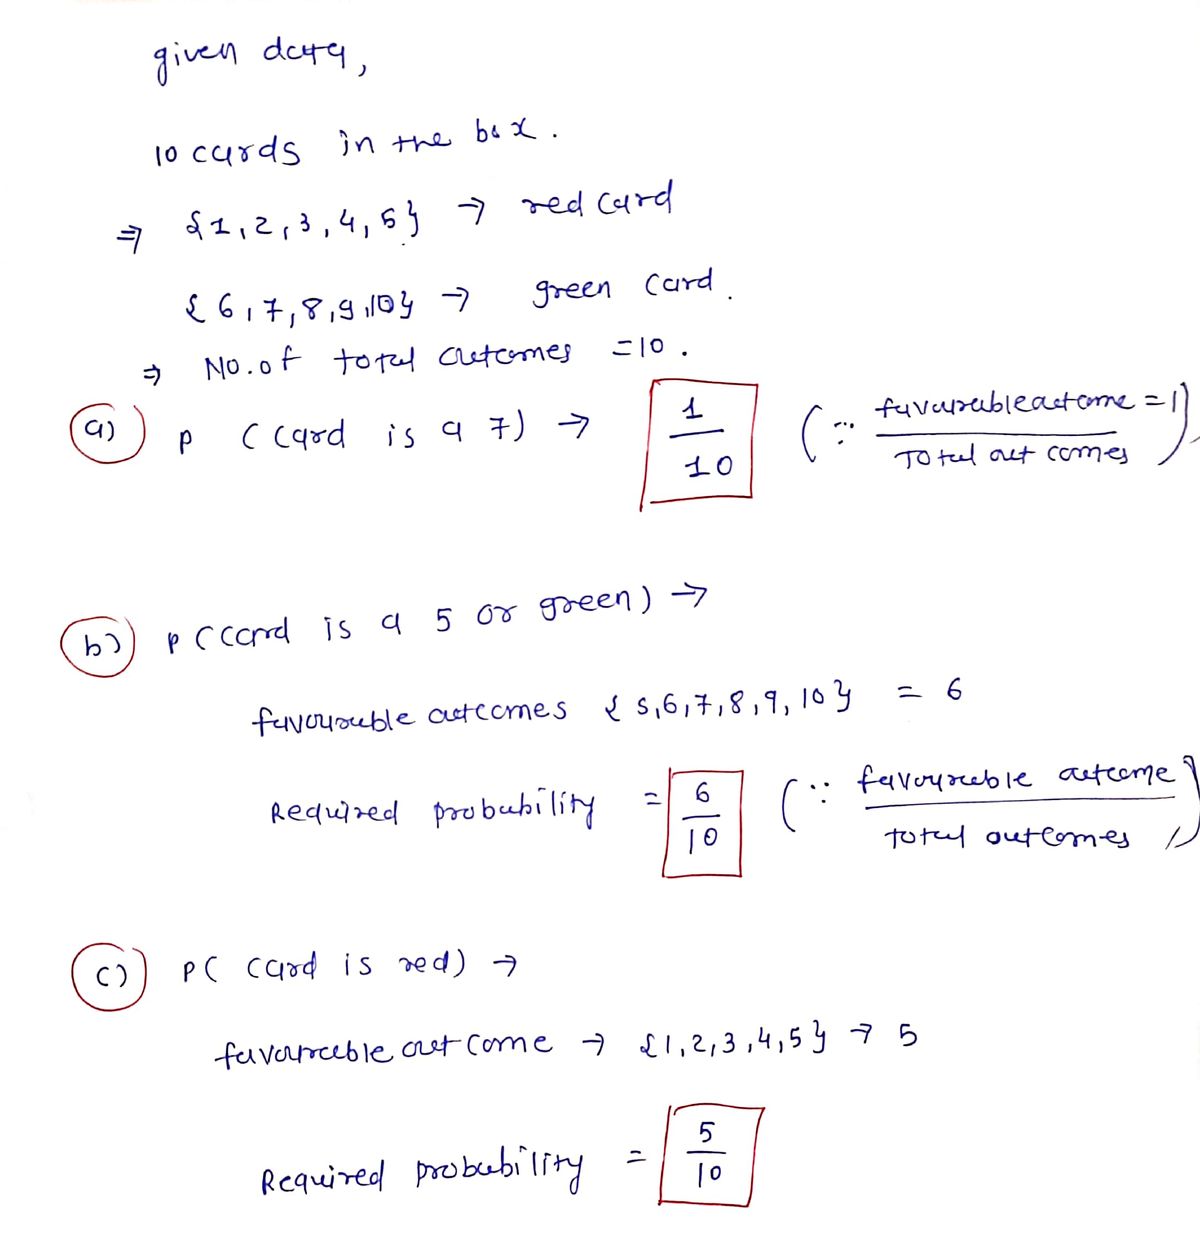 given data,
10 cards in the box.
⇒ {1,2,3,4,5} → red card
{6,7,8,9,10} → green card.
⇒ No. of total outcomes = 10.
a) P (card is a 7) → 1/10 (∵ favourable outcome = 1 / Total outcomes)
b) P (card is a 5 or green) →
favourable outcomes {5,6,7,8,9,10} = 6
Required probability = 6/10 (∵ favourable outcome / total outcomes)
c) P( card is red) →
favourable outcome → {1,2,3,4,5} → 5
Required probability = 5/10